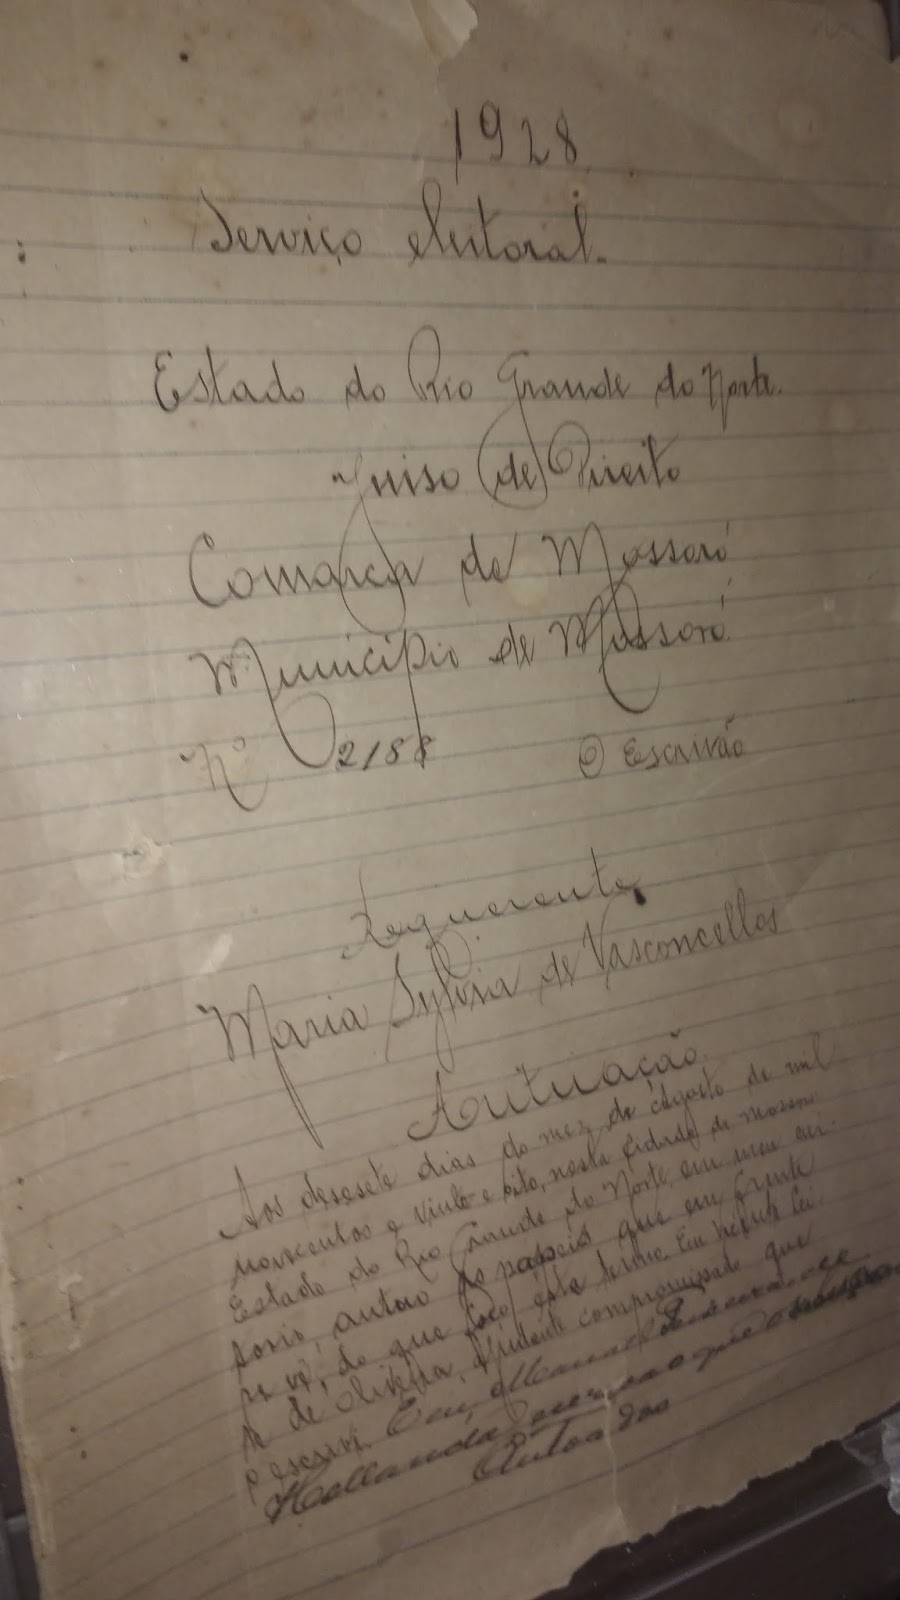 1928
Serviço eleitoral.
Estado do Rio Grande do Norte.
Juiso de Direito
Comarca de Mossoró
Municipio de Mossoró
Nº 2188 O Escrivão
Requerente,
Maria Sylvia de Vasconcellos
Autuação
Aos desesete dias do mez de Agosto de mil
novecentos e vinte e oito, nesta cidade de Mossoró
Estado do Rio Grande do Norte, em meu car-
torio, autoo os papeis que em frente
se vê, do que faço este termo. Eu
de Oliveira, compromissado que
o escrevi. Eu, Manoel
Hollanda